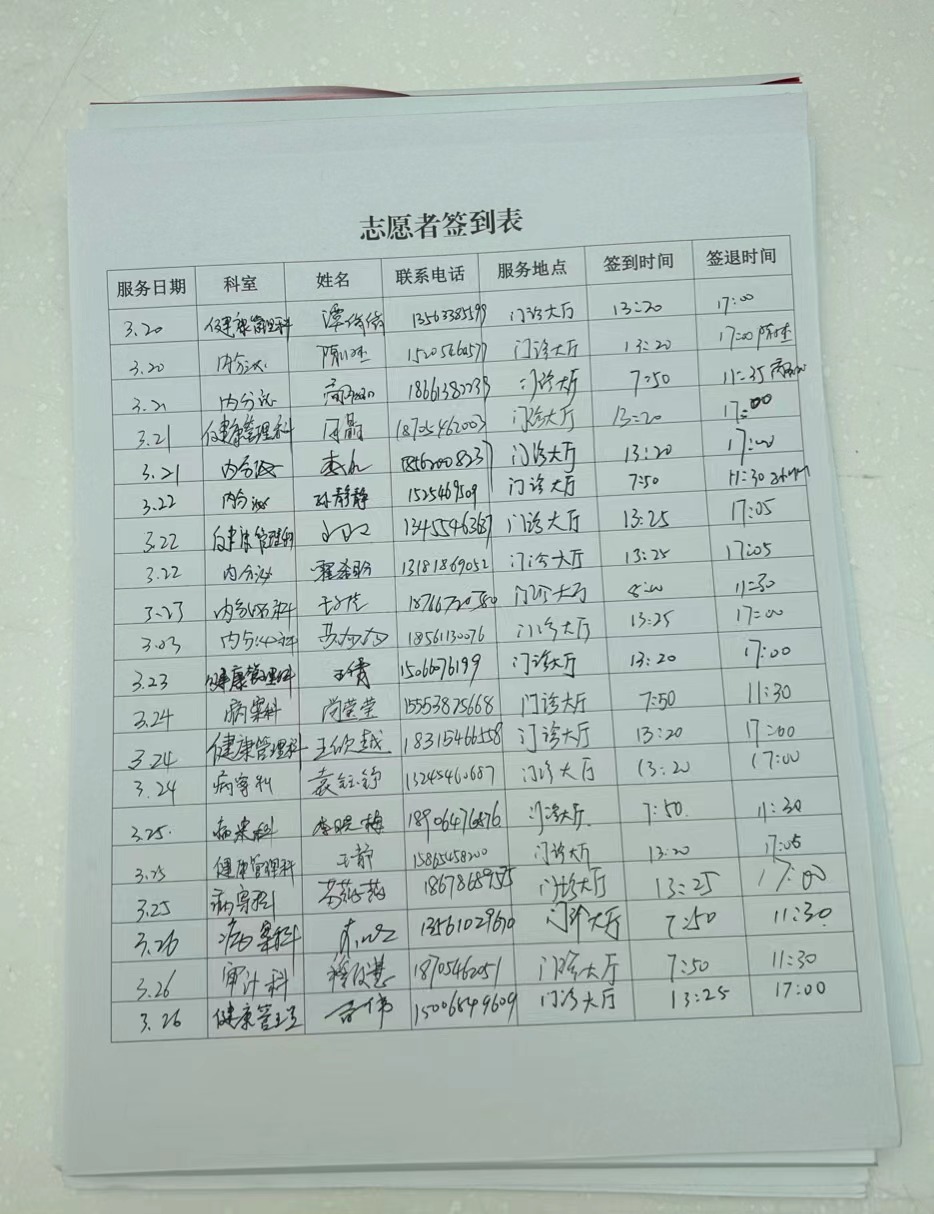 志愿者签到表
服务日期 科室 姓名 联系电话 服务地点 签到时间 签退时间
3.20 健康管理科 13563385599 门诊大厅 13:20 17:00
3.20 内分泌 门诊大厅 13:20 17:00
3.21 内分泌 门诊大厅 7:50 11:35
3.21 健康管理科 18705462003 门诊大厅 13:20 17:00
3.21 内分泌 门诊大厅 13:20 17:00
3.22 内分泌 孙静静 1525469509 门诊大厅 7:50 11:30
3.22 健康管理科 13455463687 门诊大厅 13:25 17:05
3.22 内分泌 13181869052 门诊大厅 13:25 17:05
3.23 内分泌科 18766720580 门诊大厅 8:00 11:30
3.03 内分泌科 18561130076 门诊大厅 13:25 17:00
3.23 健康管理科 王倩 1506676199 门诊大厅 13:20 17:00
3.24 病案科 尚莹莹 15553875668 门诊大厅 7:50 11:30
3.24 健康管理科 王欣越 18315466558 门诊大厅 13:20 17:00
3.24 病案科 13245460687 门诊大厅 13:20 17:00
3.25. 病案科 李晓梅 18906476876 门诊大厅. 7:50. 11:30
3.25 健康管理科 王静 15865458200 门诊大厅 13:20 17:05
3.25 病案科 门诊大厅 13:25 17:00
3.26 病案科 13561029610 门诊大厅 7:50 11:30
3.26 审计科 18705462051 门诊大厅 7:50 11:30
3.26 健康管理 15006849609 门诊大厅 13:25 17:00